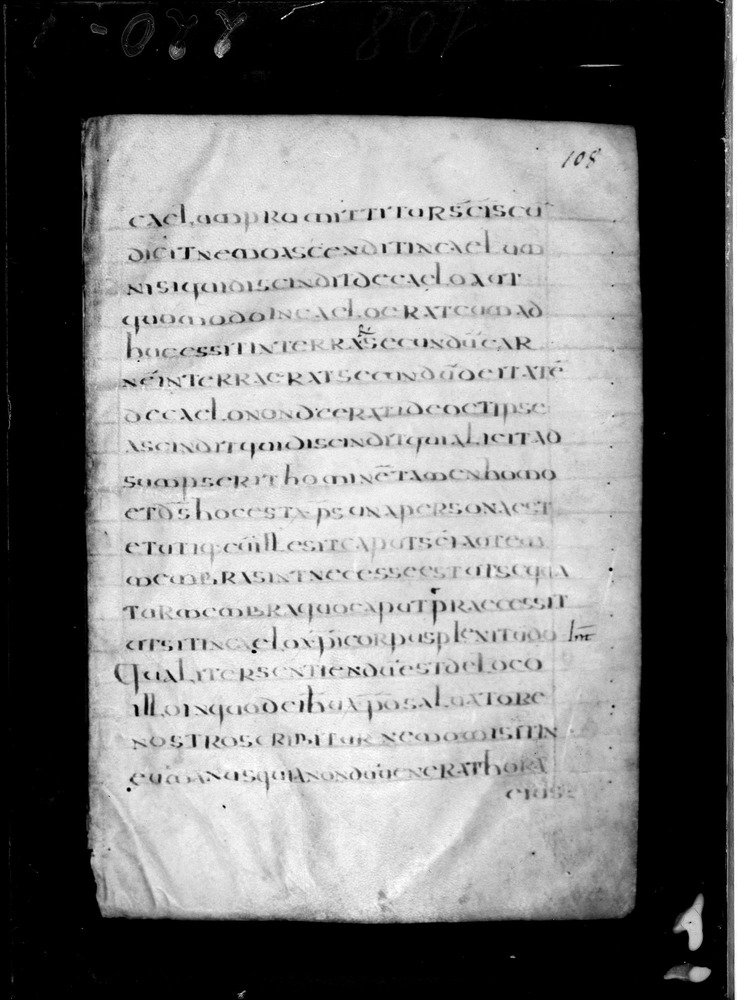 220-1
108
108
caelum promittitur sc̄is cū
dicit nemo ascendit in caelum
nisi qui discindit de caelo aut
quomodo in caelo erat cum ad
huc essit in terra secundū car
nē in terra erat secundū deitatē
de caelo nondērat ideoet ipse
ascindit qui discindit quia licit ad
sumpserit hominē tamen homo
et d̄s hoc est xp̄s una persona est
et utique ill e sit caput sc̄i autem
membra sint necesse est ut sequa
tur membra quo caput praecessit
ut sit in caelo xp̄i corpus plexitudo
Qualiter sentiendū est de loco
illo in quo de ih̄u xp̄o saluatore
nostro scribitur nemo misit in
eum manus quia nondū uenerat hora
eius: